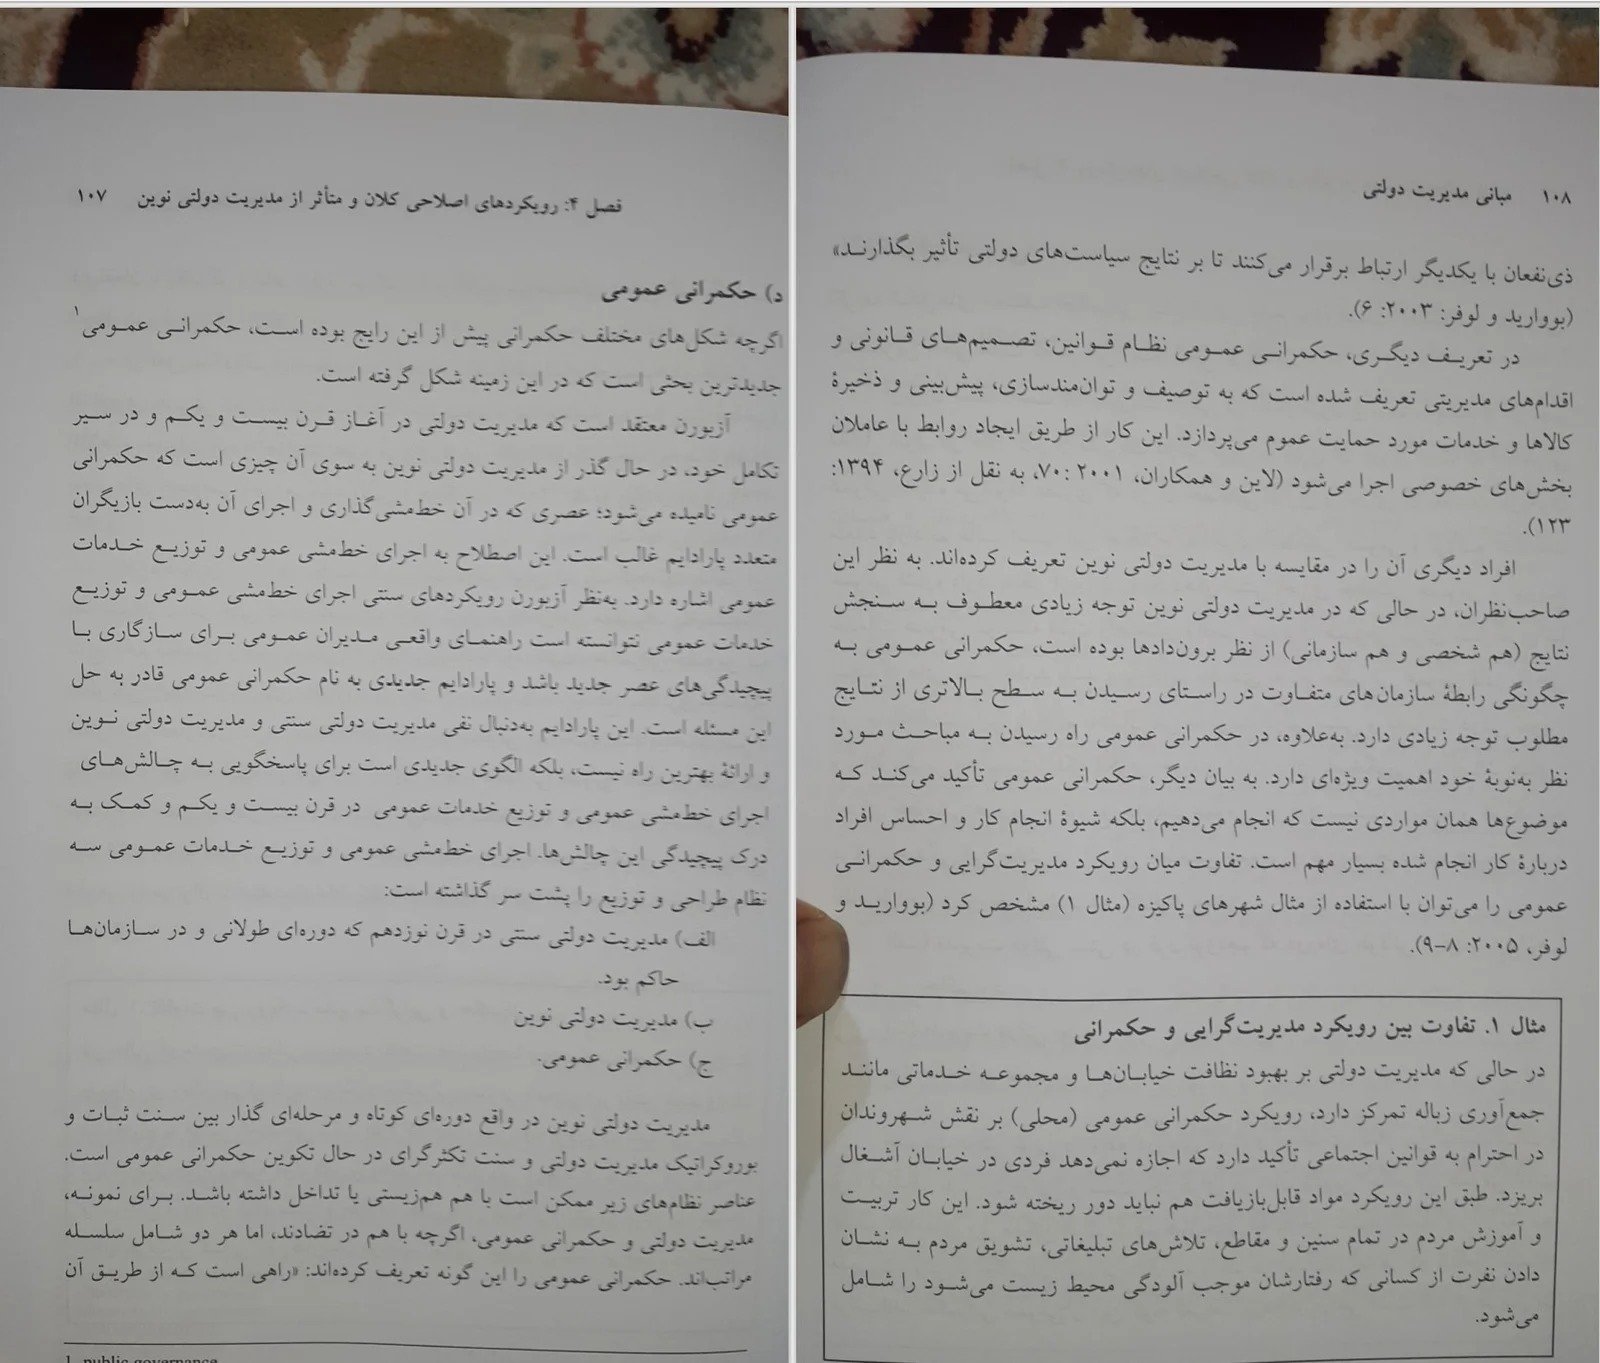 فصل ۴: رویکردهای اصلاحی کلان و متأثر از مدیریت دولتی نوین ۱۰۷
د) حکمرانی عمومی
اگرچه شکل‌های مختلف حکمرانی پیش از این رایج بوده است، حکمرانی عمومی۱
جدیدترین بحثی است که در این زمینه شکل گرفته است.
آزبورن معتقد است که مدیریت دولتی در آغاز قرن بیست و یکم و در سیر
تکامل خود، در حال گذر از مدیریت دولتی نوین به سوی آن چیزی است که حکمرانی
عمومی نامیده می‌شود؛ عصری که در آن خط‌مشی‌گذاری و اجرای آن به‌دست بازیگران
متعدد پارادایم غالب است. این اصطلاح به اجرای خط‌مشی عمومی و توزیع خدمات
عمومی اشاره دارد. به‌نظر آزبورن رویکردهای سنتی اجرای خط‌مشی عمومی و توزیع
خدمات عمومی نتوانسته است راهنمای واقعی مدیران عمومی برای سازگاری با
پیچیدگی‌های عصر جدید باشد و پارادایم جدیدی به نام حکمرانی عمومی قادر به حل
این مسئله است. این پارادایم به‌دنبال نفی مدیریت دولتی سنتی و مدیریت دولتی نوین
و ارائهٔ بهترین راه نیست، بلکه الگوی جدیدی است برای پاسخگویی به چالش‌های
اجرای خط‌مشی عمومی و توزیع خدمات عمومی در قرن بیست و یکم و کمک به
درک پیچیدگی این چالش‌ها. اجرای خط‌مشی عمومی و توزیع خدمات عمومی سه
نظام طراحی و توزیع را پشت سر گذاشته است:
الف) مدیریت دولتی سنتی در قرن نوزدهم که دوره‌ای طولانی و در سازمان‌ها
حاکم بود.
ب) مدیریت دولتی نوین
ج) حکمرانی عمومی.
مدیریت دولتی نوین در واقع دوره‌ای کوتاه و مرحله‌ای گذار بین سنت ثبات و
بوروکراتیک مدیریت دولتی و سنت تکثرگرای در حال تکوین حکمرانی عمومی است.
عناصر نظام‌های زیر ممکن است با هم هم‌زیستی یا تداخل داشته باشد. برای نمونه،
مدیریت دولتی و حکمرانی عمومی، اگرچه با هم در تضادند، اما هر دو شامل سلسله
مراتب‌اند. حکمرانی عمومی را این گونه تعریف کرده‌اند: «راهی است که از طریق آن
1. public governance
۱۰۸ مبانی مدیریت دولتی
ذی‌نفعان با یکدیگر ارتباط برقرار می‌کنند تا بر نتایج سیاست‌های دولتی تأثیر بگذارند»
(بووارید و لوفر: ۲۰۰۳: ۶).
در تعریف دیگری، حکمرانی عمومی نظام قوانین، تصمیم‌های قانونی و
اقدام‌های مدیریتی تعریف شده است که به توصیف و توان‌مندسازی، پیش‌بینی و ذخیرهٔ
کالاها و خدمات مورد حمایت عموم می‌پردازد. این کار از طریق ایجاد روابط با عاملان
بخش‌های خصوصی اجرا می‌شود (لاین و همکاران، ۲۰۰۱: ۷۰، به نقل از زارع، ۱۳۹۴:
۱۲۳).
افراد دیگری آن را در مقایسه با مدیریت دولتی نوین تعریف کرده‌اند. به نظر این
صاحب‌نظران، در حالی که در مدیریت دولتی نوین توجه زیادی معطوف به سنجش
نتایج (هم شخصی و هم سازمانی) از نظر برون‌دادها بوده است، حکمرانی عمومی به
چگونگی رابطهٔ سازمان‌های متفاوت در راستای رسیدن به سطح بالاتری از نتایج
مطلوب توجه زیادی دارد. به‌علاوه، در حکمرانی عمومی راه رسیدن به مباحث مورد
نظر به‌نوبهٔ خود اهمیت ویژه‌ای دارد. به بیان دیگر، حکمرانی عمومی تأکید می‌کند که
موضوع‌ها همان مواردی نیست که انجام می‌دهیم، بلکه شیوهٔ انجام کار و احساس افراد
دربارهٔ کار انجام شده بسیار مهم است. تفاوت میان رویکرد مدیریت‌گرایی و حکمرانی
عمومی را می‌توان با استفاده از مثال شهرهای پاکیزه (مثال ۱) مشخص کرد (بووارید و
لوفر، ۲۰۰۵: ۸-۹).
مثال ۱. تفاوت بین رویکرد مدیریت‌گرایی و حکمرانی
در حالی که مدیریت دولتی بر بهبود نظافت خیابان‌ها و مجموعه خدماتی مانند
جمع‌آوری زباله تمرکز دارد، رویکرد حکمرانی عمومی (محلی) بر نقش شهروندان
در احترام به قوانین اجتماعی تأکید دارد که اجازه نمی‌دهد فردی در خیابان آشغال
بریزد. طبق این رویکرد مواد قابل‌بازیافت هم نباید دور ریخته شود. این کار تربیت
و آموزش مردم در تمام سنین و مقاطع، تلاش‌های تبلیغاتی، تشویق مردم به نشان
دادن نفرت از کسانی که رفتارشان موجب آلودگی محیط زیست می‌شود را شامل
می‌شود.